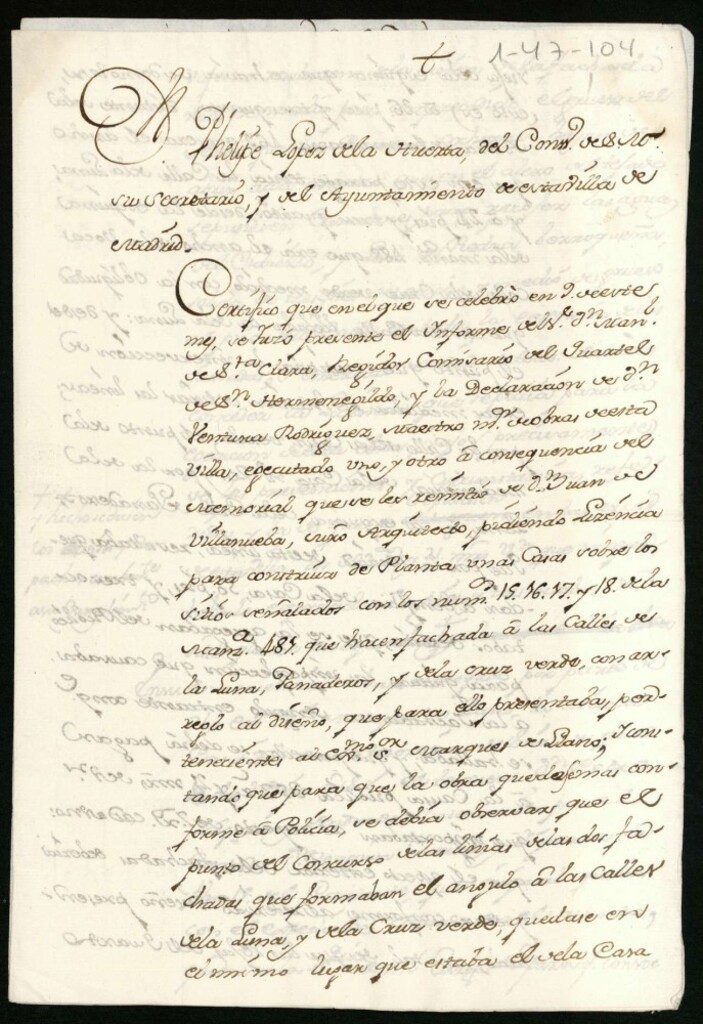 + 1-47-104
Dn Phelipe Lopez de la Huerta, del Conso. de S. M.
su Secretario, y del Ayuntamiento de esta Villa de
Madrid.
Certifico que en el que se celebrò en 9. de este
mes, se hizo presente el Informe del Sr. Dn. Manl.
de Sta. Clara, Regidor Comisario del Quartel
de Sn. Hermenegildo, y la Declaracion de Dn.
Ventura Rodriguez, Maestro mor. de obras de esta
Villa, egecutado uno, y otro à consequencia del
Memorial que se les remitiò de Dn. Juan de
Villanueba, Arquitecto, pidiendo Lizencia
para construir de Planta unas Casas sobre los
sitios señalados con los numos. 15. 16. 17. y 18. de la
Manza. 487. que hacen fachada à las Calles de
la Luna, Panaderos, y de la Cruz verde, con ar-
reglo al diseño, que para ello presentaba, per-
tenecientes al Exmo. Sor. Marques de Llano; Y cons-
tando que para que la obra quedase mas con-
forme à Policìa, se debia observar que el
punto del Concurso de las lineas de las dos fa-
chadas que formaban el angulo à las Calles
de la Luna, y de la Cruz verde, quedase en
el mismo lugar que estaba el de la Casa